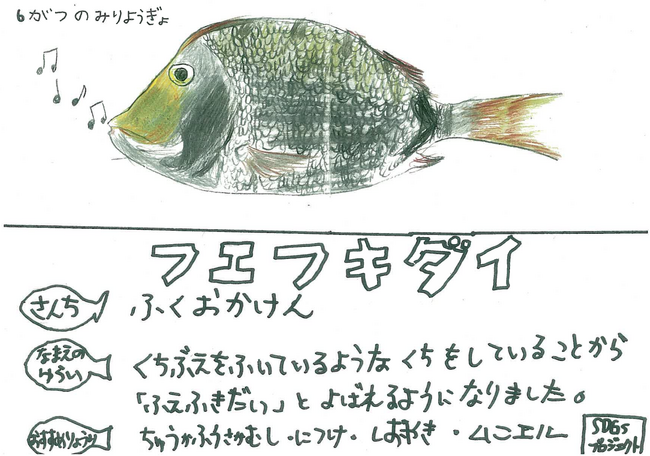 6がつのみりようぎょ
フエフキダイ
さんち
ふくおかけん
なまえの
ゆらい
くちぶえをふいているような くちをしていることから
「ふえふきだい」と よばれるように なりました。
おすすめりょうり
ちゅうかふうさかむし・につけ・しおやき・ムニエル
SDGs
プロジェクト